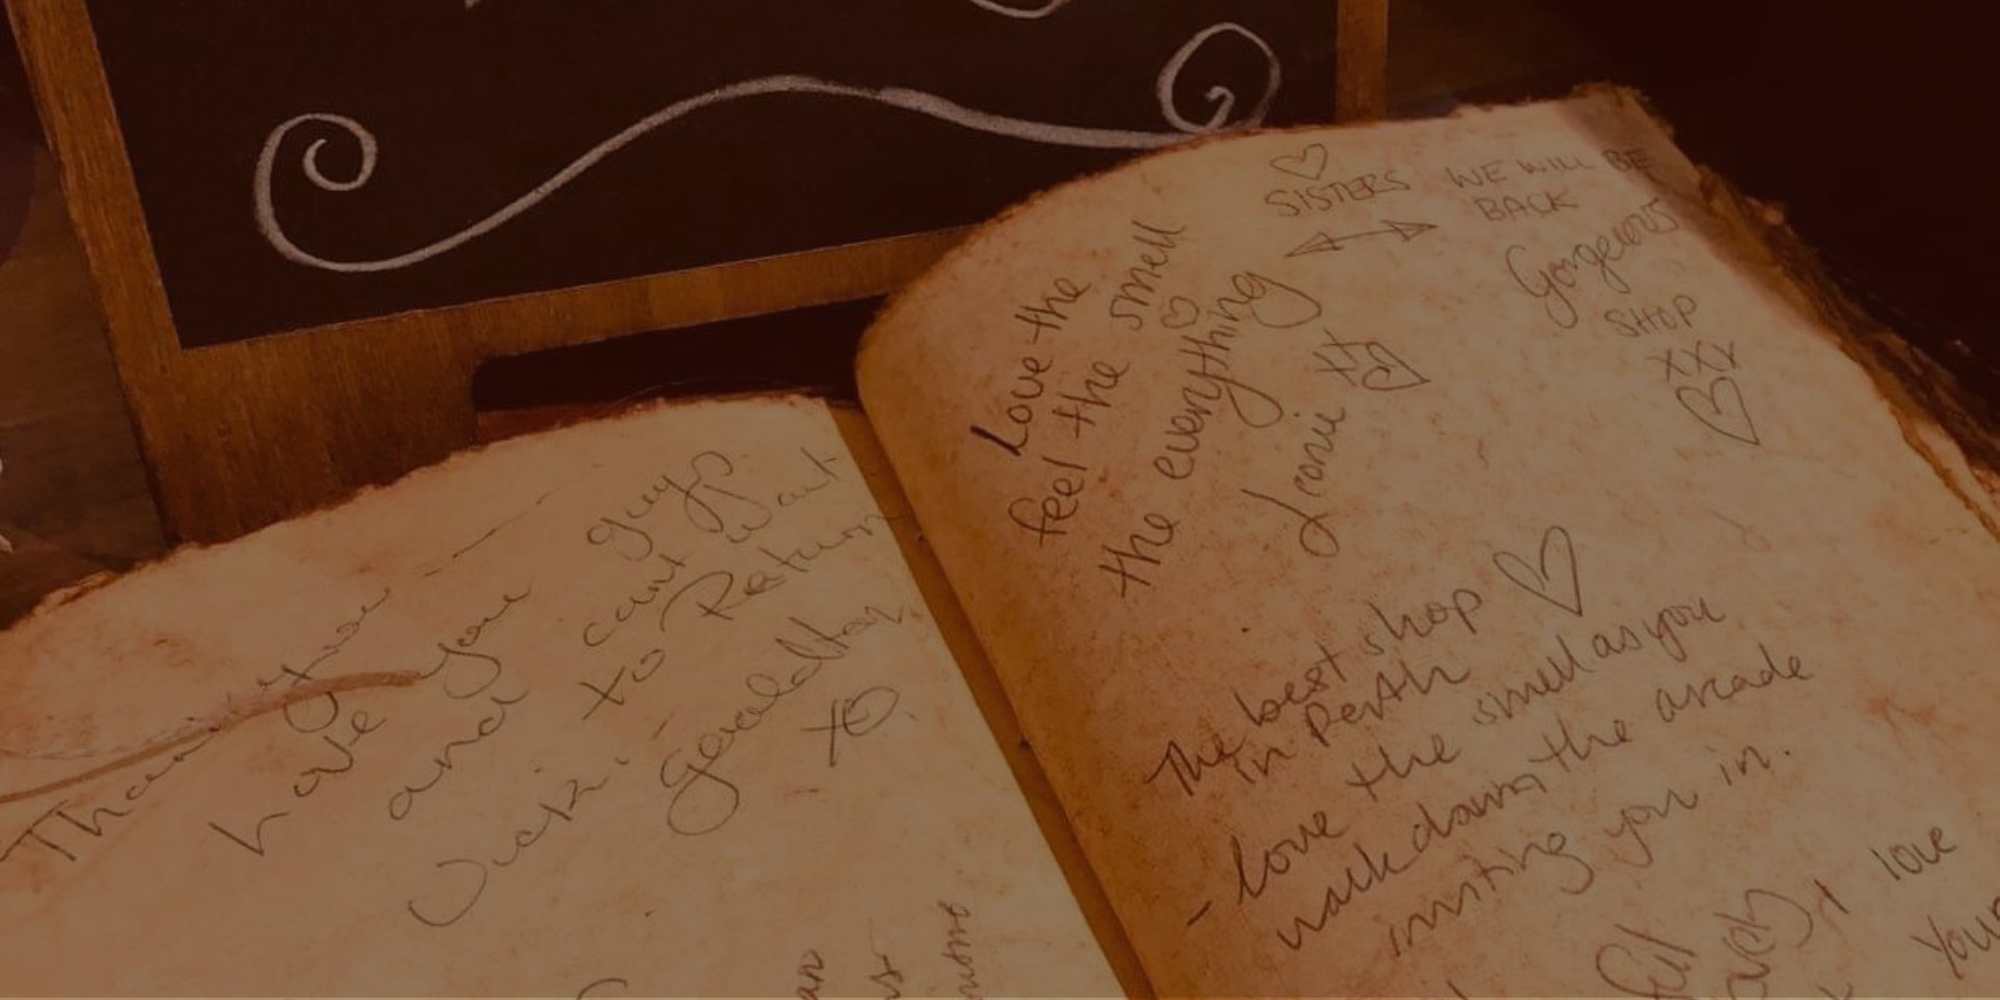 Thank you
Love you guys
and cant wait
to Return
Vicki
geraldton
XO
Love the
feel the smell
the everything
SISTERS
WE WILL BE
BACK
Gorgeous
SHOP
XXX
The best shop
in Perth
- love the smell as you
walk down the arcade
inviting you in.
love
your